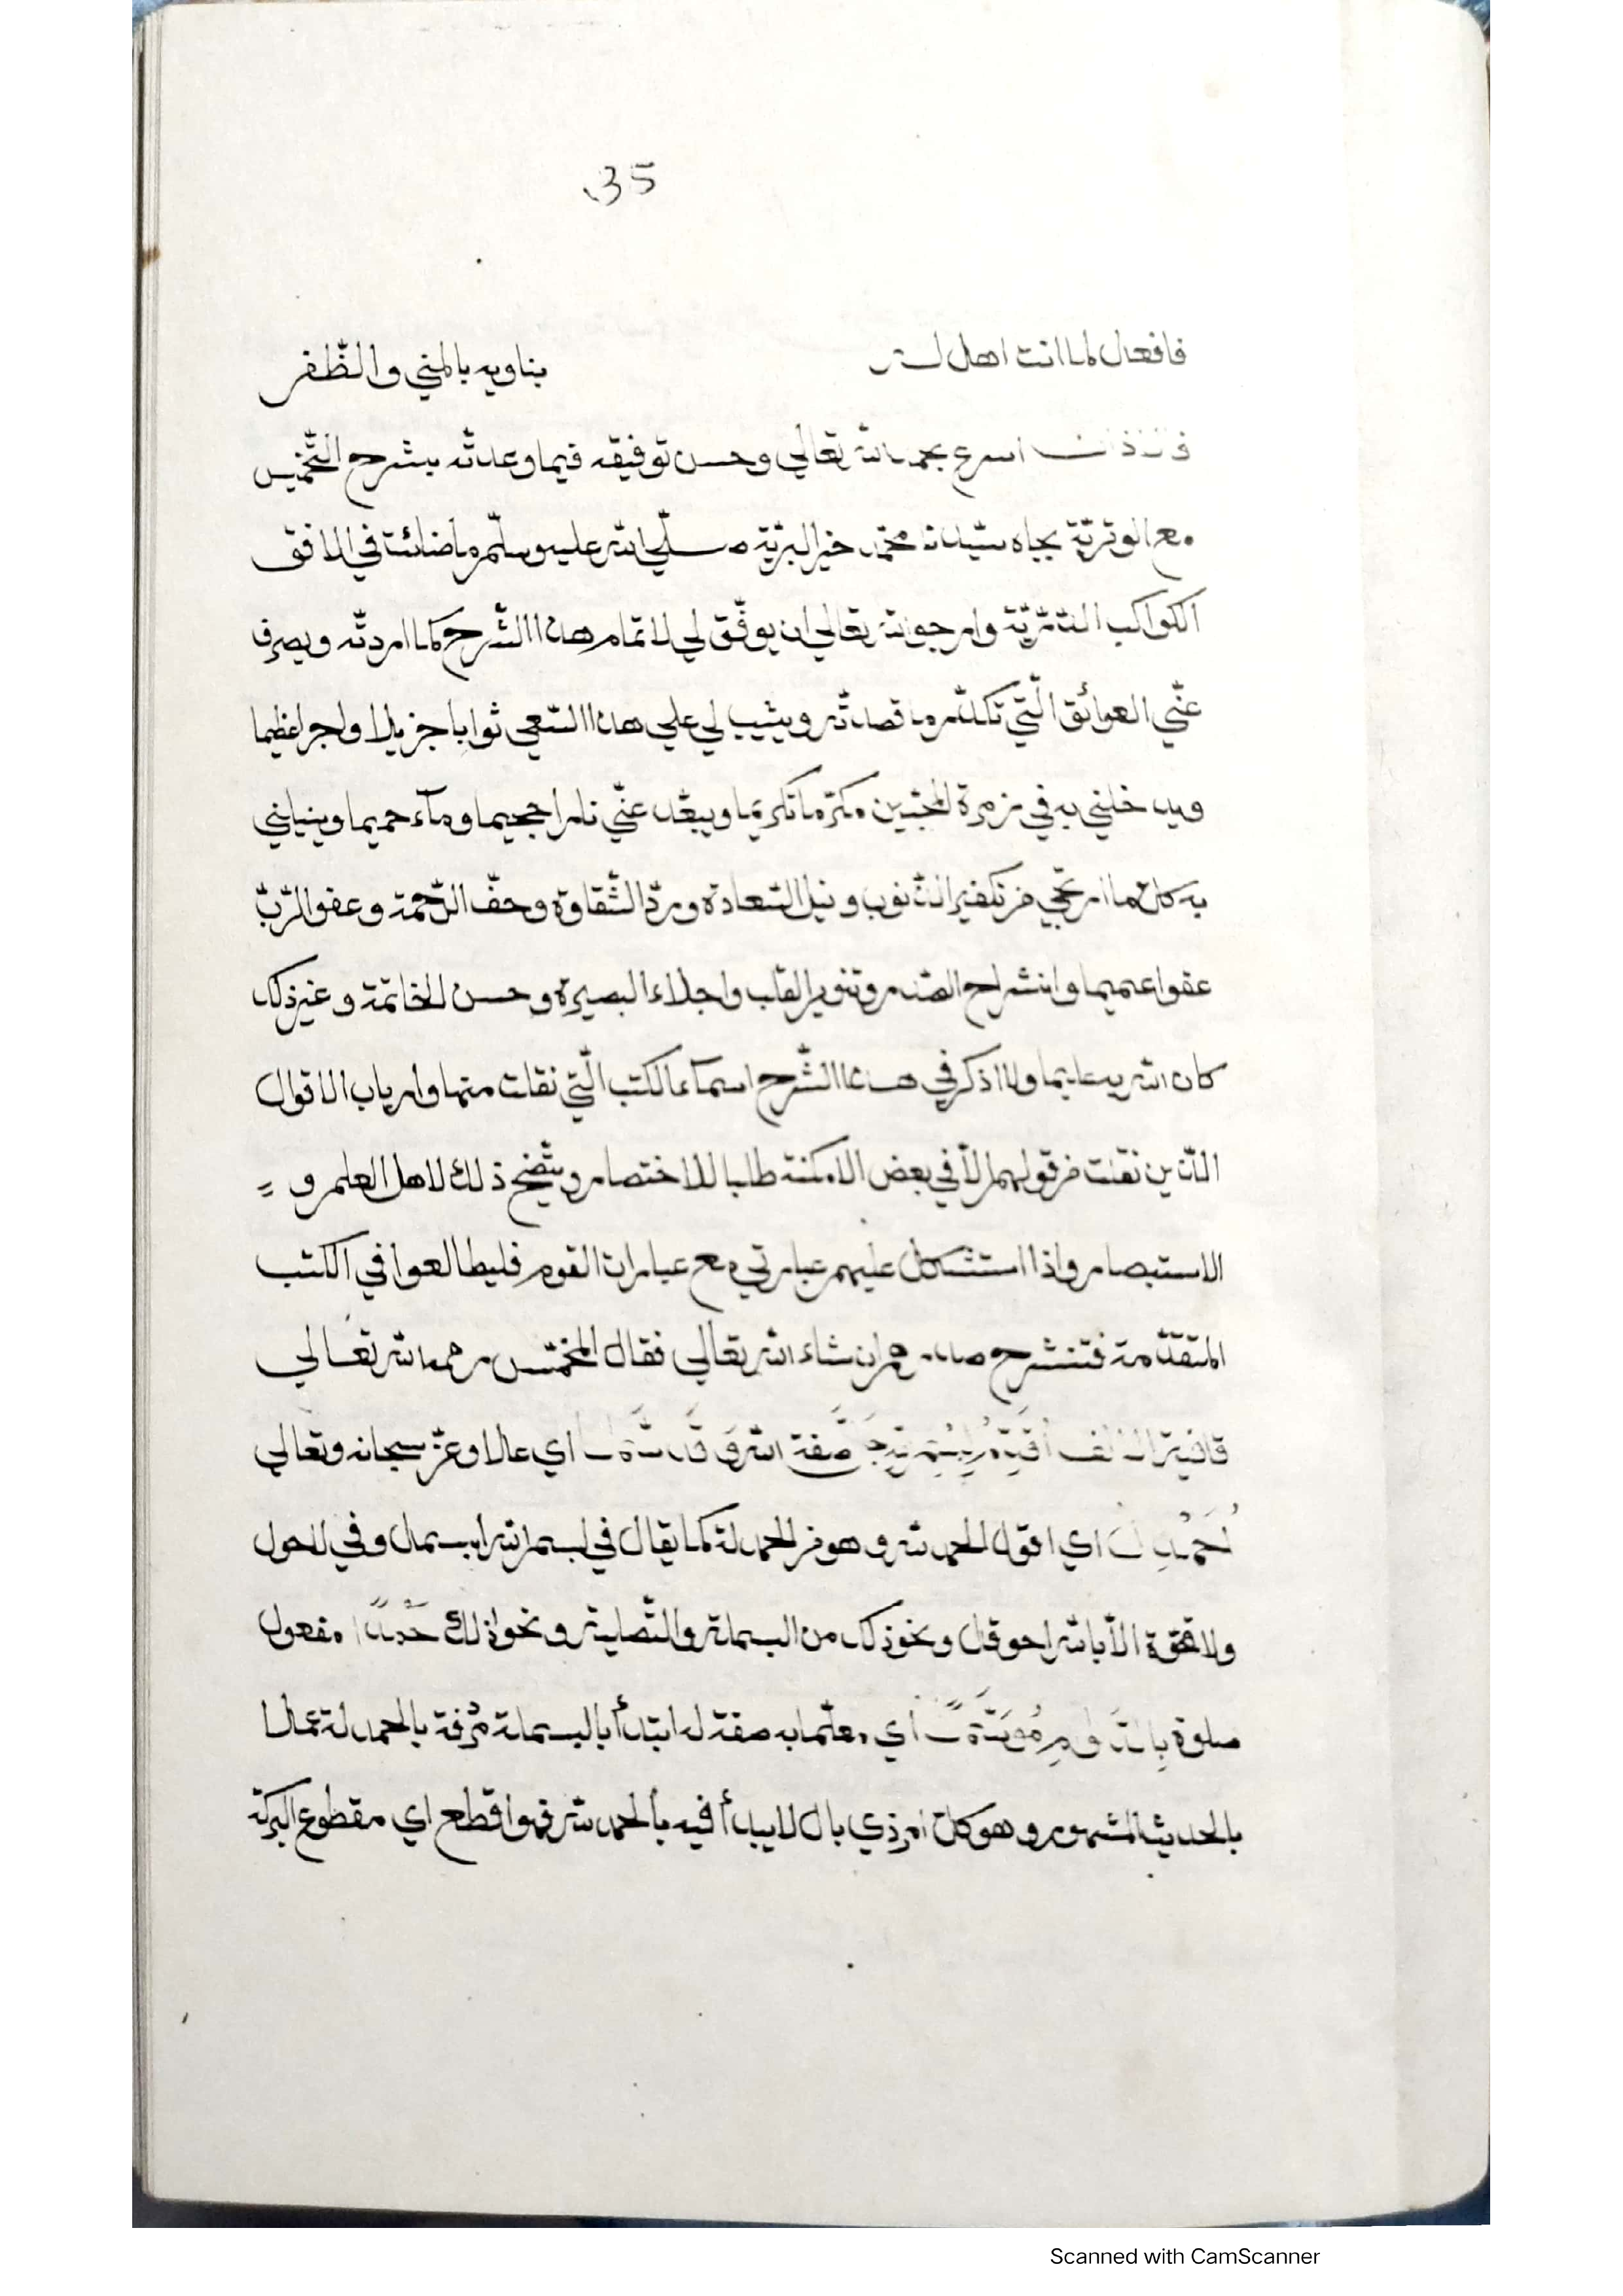 35
فافعال لما انت اهل له بنا وبه بالمني والظّفر
اسرع بحمد الله تعالي وحسن توفيقه فيما وعدتّه بشرح التّخميس
مع الوتريّة بجاه سيّدنا محمّد خير البريّة صلّي الله عليه وسلّم ما ضائت في الافق
الكواكب الدّرّيّة وارجو الله تعالي ان يوفّق لي لاتمام هذا الشّرح كما اردتّه ويصرف
عنّي العوائق الّتي تكدّر ما قصدتّه ويثيب لي علي هذا السّعي ثوابا جزيلا واجرا عظيما
ويدخلني به في زمرة المحبّين مكرّما تكريما ويبعّد عنّي نارا جحيما ومآء حميما وينيلني
به كلّ ما ارتجي من تكفير الذّنوب ونيل السّعادة وردّ الشّقاوة وحفّ الرّحمة وعفو الرّبّ
عفوا عميما وانشراح الصّدر وتنوير القلب واجلاء البصيرة وحسن الخاتمة وغير ذلك
كان الله به عليما ولا اذكر في هذا الشّرح اسمآء الكتب الّتي نقلت منها وارباب الاقوال
الّذين نقلت من قولهم الّا في بعض الامكنة طلبا للاختصار ويتّضح ذلك لاهل العلم و
الاستبصار واذا استشكل عليهم عبارتي مع عبارات القوم فليطالعوا في الكتب
المتقدّمة فتنشرح صدورهم ان شاء الله تعالي فقال المخمّس رحمه الله تعالي
قافية الالف صفة الله اي علا وعزّ سبحانه وتعالي
اي اقول الحمد لله وهو من الحمدلة كما يقال في بسم الله ابسمل وفي لاحول
ولا قوّة الّا بالله احوقل ونحو ذلك من البسملة والتّصلية ونحو ذلك حمدا مفعول
صلوة اي معلّما به صفة له ابتدأ بالبسملة مردفة بالحمدلة عملا
بالحديث المشهور وهو كلّ امر ذي بال لا يبدأ فيه بالحمد لله فهو اقطع اي مقطوع البركة
Scanned with CamScanner